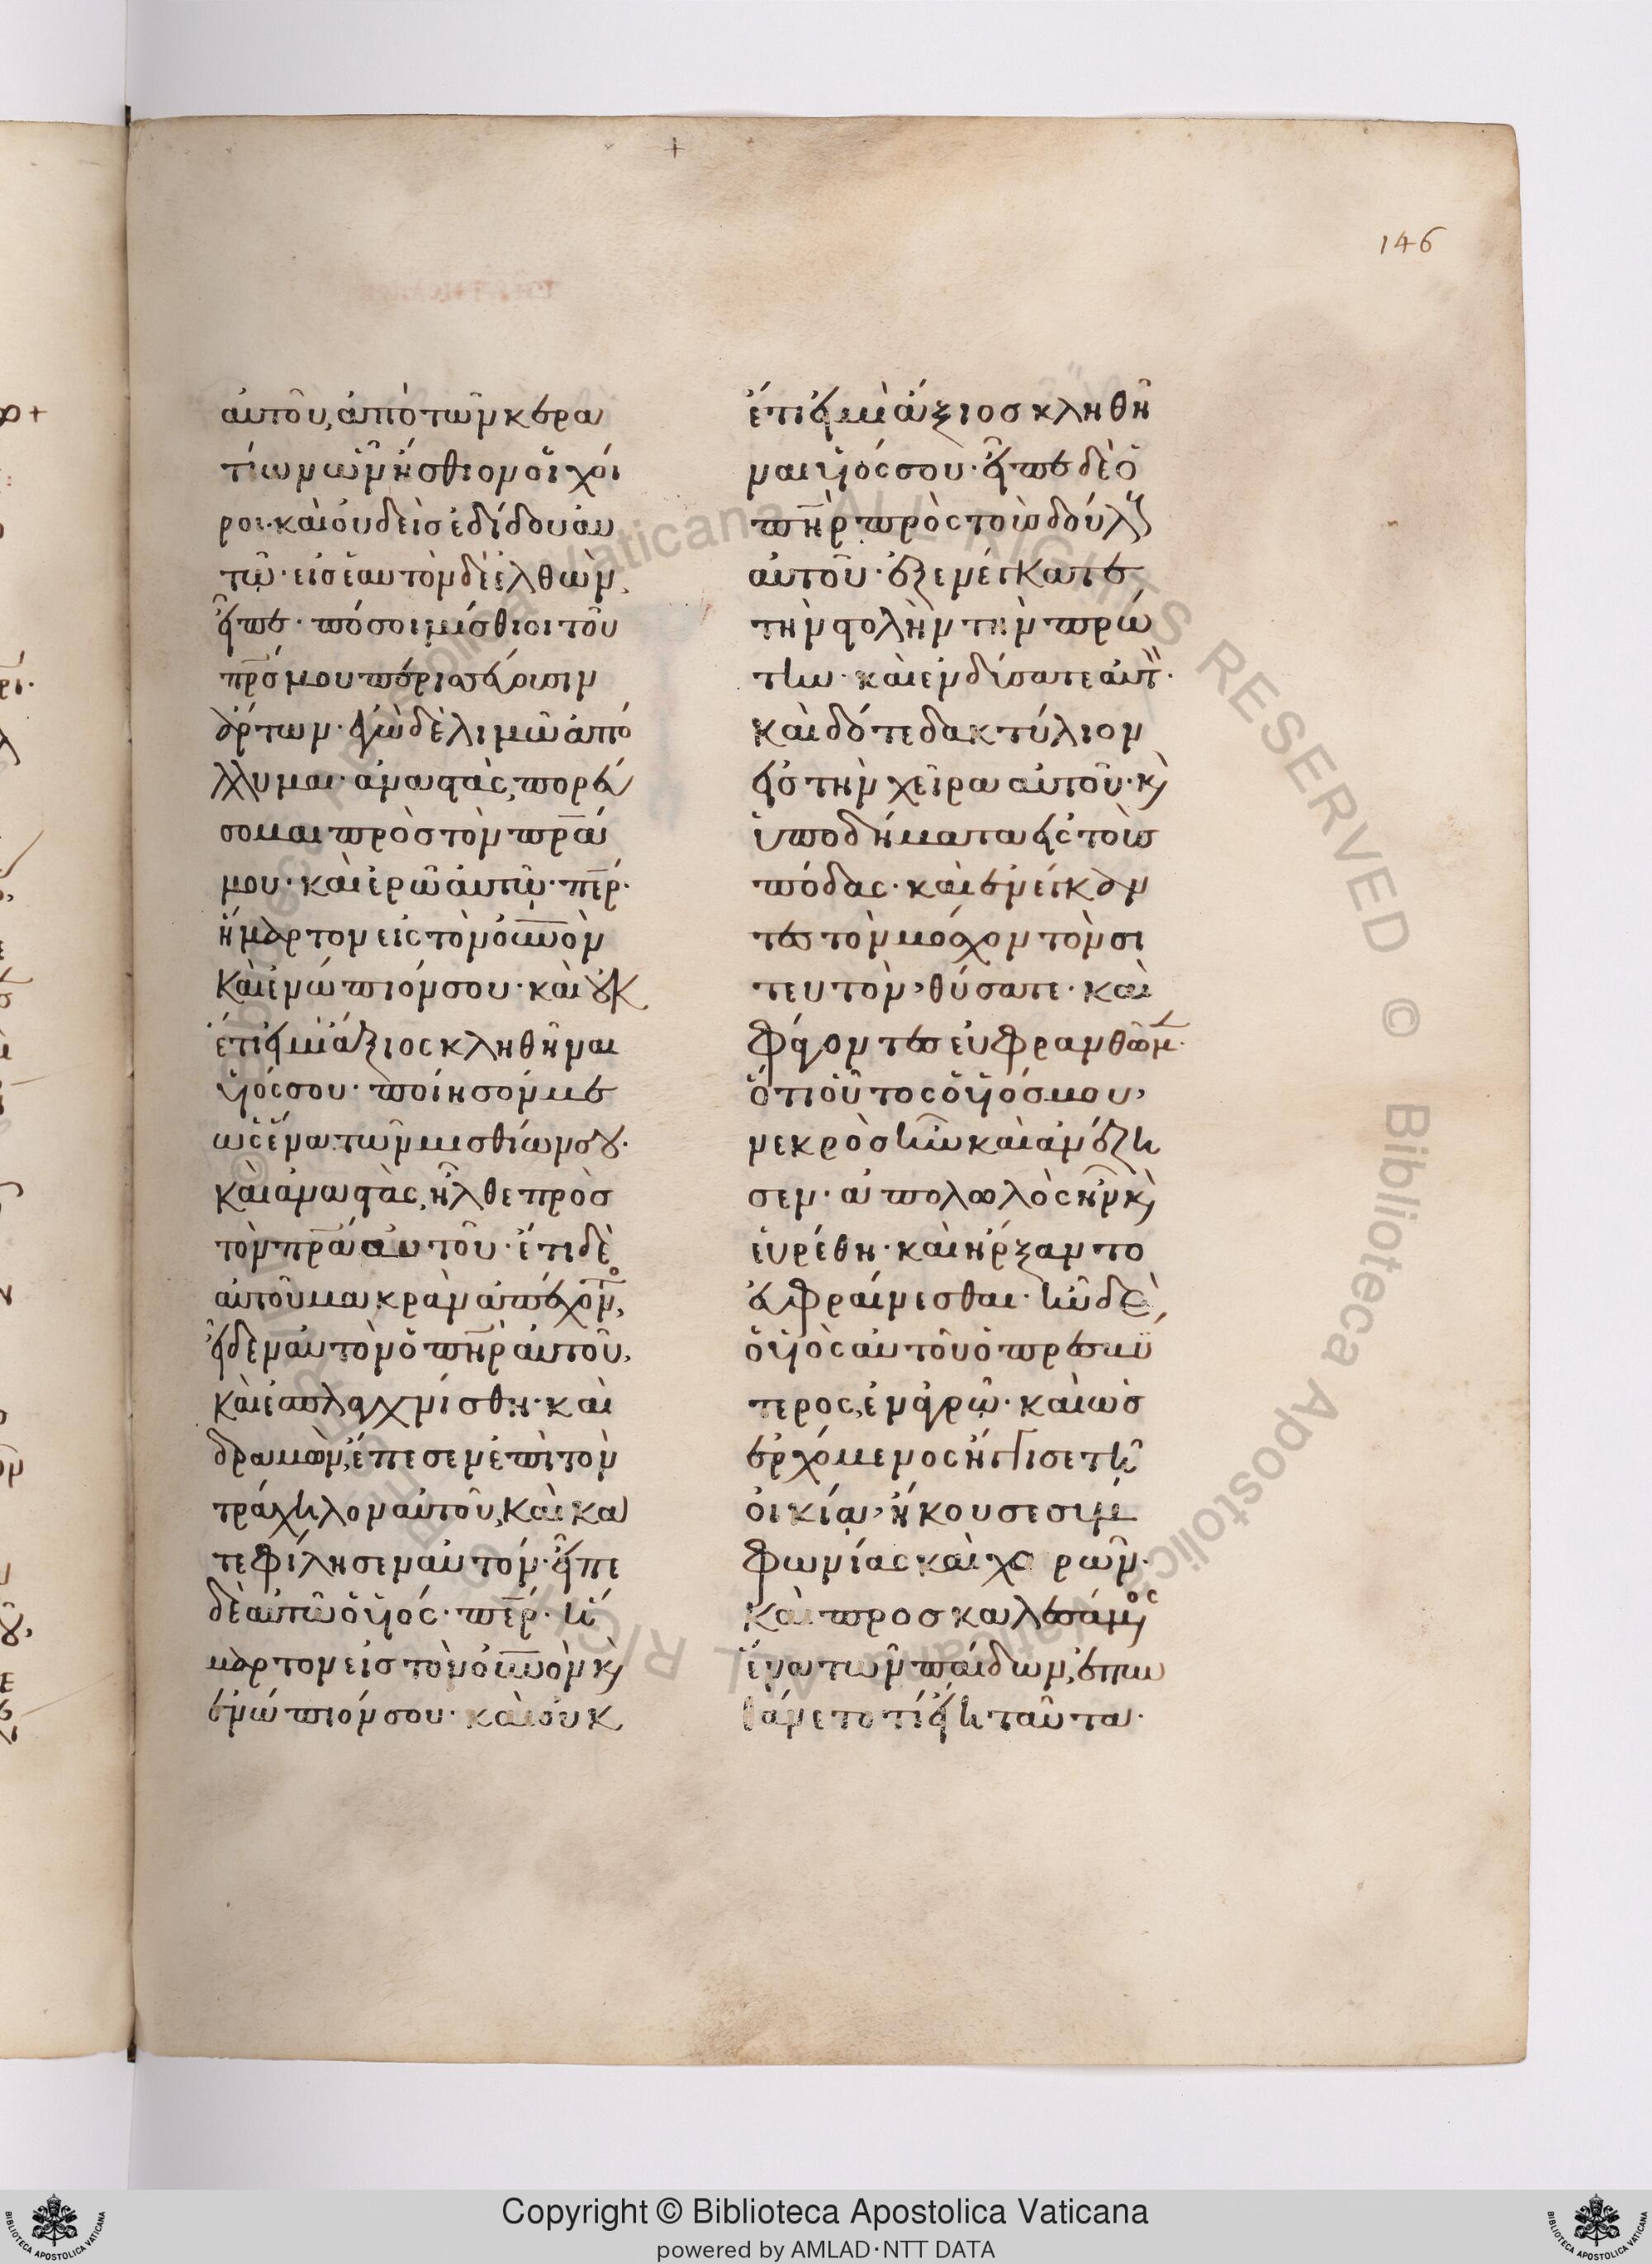 146
αὐτοῦ, ἀπὸ τῶν κερα
τίων ὧν ἤσθιον οἱ χοῖ
ροι· καὶ οὐδεὶς ἐδίδου αὐ
τῷ· εἰς ἑαυτὸν δὲ ἐλθὼν,
εἶπε· πόσοι μίσθιοι τοῦ
πρσ μου περισσεύουσιν
ἄρτων· ἐγὼ δὲ λιμῶ ἀπό
λλυμαι· ἀναστὰς, πορεύ
σομαι πρὸς τὸν πρα
μου· καὶ ἐρῶ αὐτῷ· περ·
ἥμαρτον εἰς τὸν οὐνὸν
καὶ ἐνώπιόν σου· καὶ οὐκ
έτι εἰμὶ ἄξιος κληθῆναι
υἱός σου· ποίησόν με
ὡς ἕνα τῶν μισθίων σου·
καὶ ἀναστὰς, ἦλθε πρὸς
τὸν πρα αὐτοῦ· ἔτι δὲ
αὐτοῦ μακρὰν ἀπέχοντο,
εἶδεν αὐτὸν ὁ πηρ αὐτοῦ,
καὶ ἐσπλαγχνίσθη· καὶ
δραμὼν, ἔπεσεν ἐπὶ τὸν
τράχηλον αὐτοῦ, καὶ κα
τεφίλησεν αὐτόν· εἶπε
δὲ αὐτῶ ὁ υἱός· περ· ἥ
μαρτον εἰς τὸν οὐνὸν κὶ
ἐνώπιόν σου· καὶ οὐκ
έτι εἰμὶ ἄξιος κληθῆ
ναι υἱός σου· εἶπε δὲ ὁ
πηρ πρὸς τοὺς δούλους
αὐτοῦ· ἐξενέγκατε
τὴν στολὴν τὴν πρώ
την· καὶ ἐνδύσατε αὐτ·
καὶ δότε δακτύλιον
εἰς τὴν χεῖρα αὐτοῦ· κὶ
ὑποδήματα εἰς τοὺς
πόδας· καὶ ἐνέγκαν
τες τὸν μόσχον τὸν σι
τευτὸν, θύσατε· καὶ
φαγόντες εὐφρανθῶμ·
ὅτι οὗτος ὁ υἱός μου,
νεκρὸς ἦν καὶ ἀνέζη
σεν· ἀπολωλὸς ἦν κὶ
εὑρέθη· καὶ ἤρξαντο
εὐφραίνεσθαι· ἦν δὲ
ὁ υἱὸς αὐτοῦ ὁ πρεσβύ
τερος, ἐν ἀγρῷ· καὶ ὡς
ἐρχόμενος ἤγγισε τῆ
οἰκία, ἤκουσε συμ
φωνίας καὶ χορῶν·
καὶ προσκαλεσάμενος
ἕνα τῶν παίδων, ἐπυν
θάνετο τί εἴη ταῦτα·
Copyright © Biblioteca Apostolica Vaticana
powered by AMLAD·NTT DATA